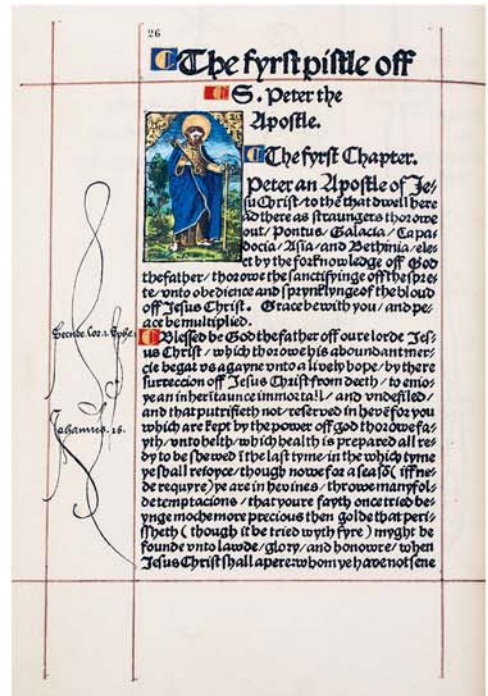 26
The fyrst pistle off
S. Peter the
Apostle.
The fyrst Chapter.
Peter an Apostle of Je/
su Christ/to the that dwell here
ad there as straungers thorowe
out/ Pontus/ Galacia/ Capa/
docia/ Asia/ and Bethinia/ ele/
ct by the forknowledge off God
thefather/ thorowe the sanctifyinge off the spre/
te/ vnto obedience and sprynklynge of the bloud
off Jesus Christ. Grace be with you/ and pe/
ace be multiplied.
Blessed be God the father off oure lorde Jes/
us Christ/ which thorowe his aboundant mer/
cie begat vs agayne vnto a lively hope/ by there
surreccion off Jesus Christ from deeth/ to enio/
ye an inheritaunce immortall/ and vndefiled/
and that putrifieth not/ reserved in hevē for you
which are kept by the power off god thorowe fa/
yth/ vnto helth/ which health is prepared all re/
dy to be shewed ī the last tyme/ in the which tyme
ye shall reioyce/ though nowe for a seasō( iff ne/
de requyre) ye are in hevines/ throwe manyfol/
de temptacions/ that youre fayth once tried be/
ynge moche more precious then golde that peri/
ssheth ( though it be tried wyth fyre ) myght be
founde vnto lawde/ glory/ and honowre/ when
Jesus Christ shall apere: whom ye have not sene
Secūde. Cor. 1. Ephe.
Johannes. 16.